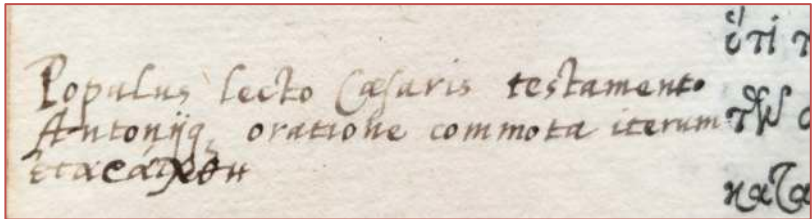 Populus lecto Cæsaris testamento
Antonijq; oratione commota iterum
ὅτι τ